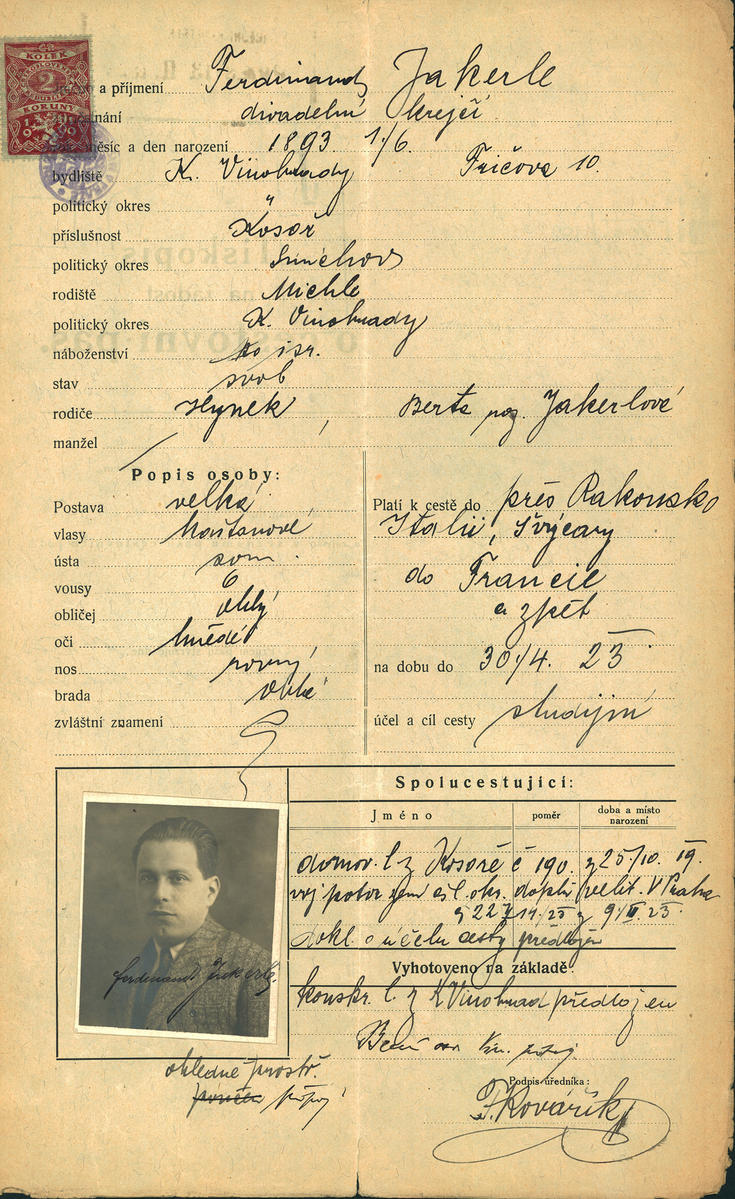 KOLEK
2
KORUNY
1919
a příjmení Ferdinand Jakerle
divadelní krejčí
měsíc a den narození 1893 1/6.
bydliště K. Vinohrady Fričova 10.
politický okres "
příslušnost Kosoř
politický okres Smíchov
rodiště Michle
politický okres K. Vinohrady
náboženství isr.
stav svob
rodiče Hynek, Berta roz. Jakerlové
manžel
Popis osoby:
Postava velká
vlasy kaštanové
ústa soum.
vousy 0
obličej oblý
oči hnědé
nos rovný
brada oblá
zvláštní znamení
Platí k cestě do přes Rakousko
Italii, Švýcary
do Francie
a zpět
na dobu do 30/4. 23
účel a cíl cesty studijní
Spolucestující:
Jméno poměr doba a místo narození
domov. l. z Kosoře č 190. z 25/10. 19.
voj potvr zem čsl. okr. doplň velit. V Praha
9/II. 23.
dokl. o účelu cesty předložen
Vyhotoveno na základě:
konskr. l. z K Vinohrad předložen
ohledně prostř.
Podpis úředníka:
F. Kovářík
Ferdinand Jakerle